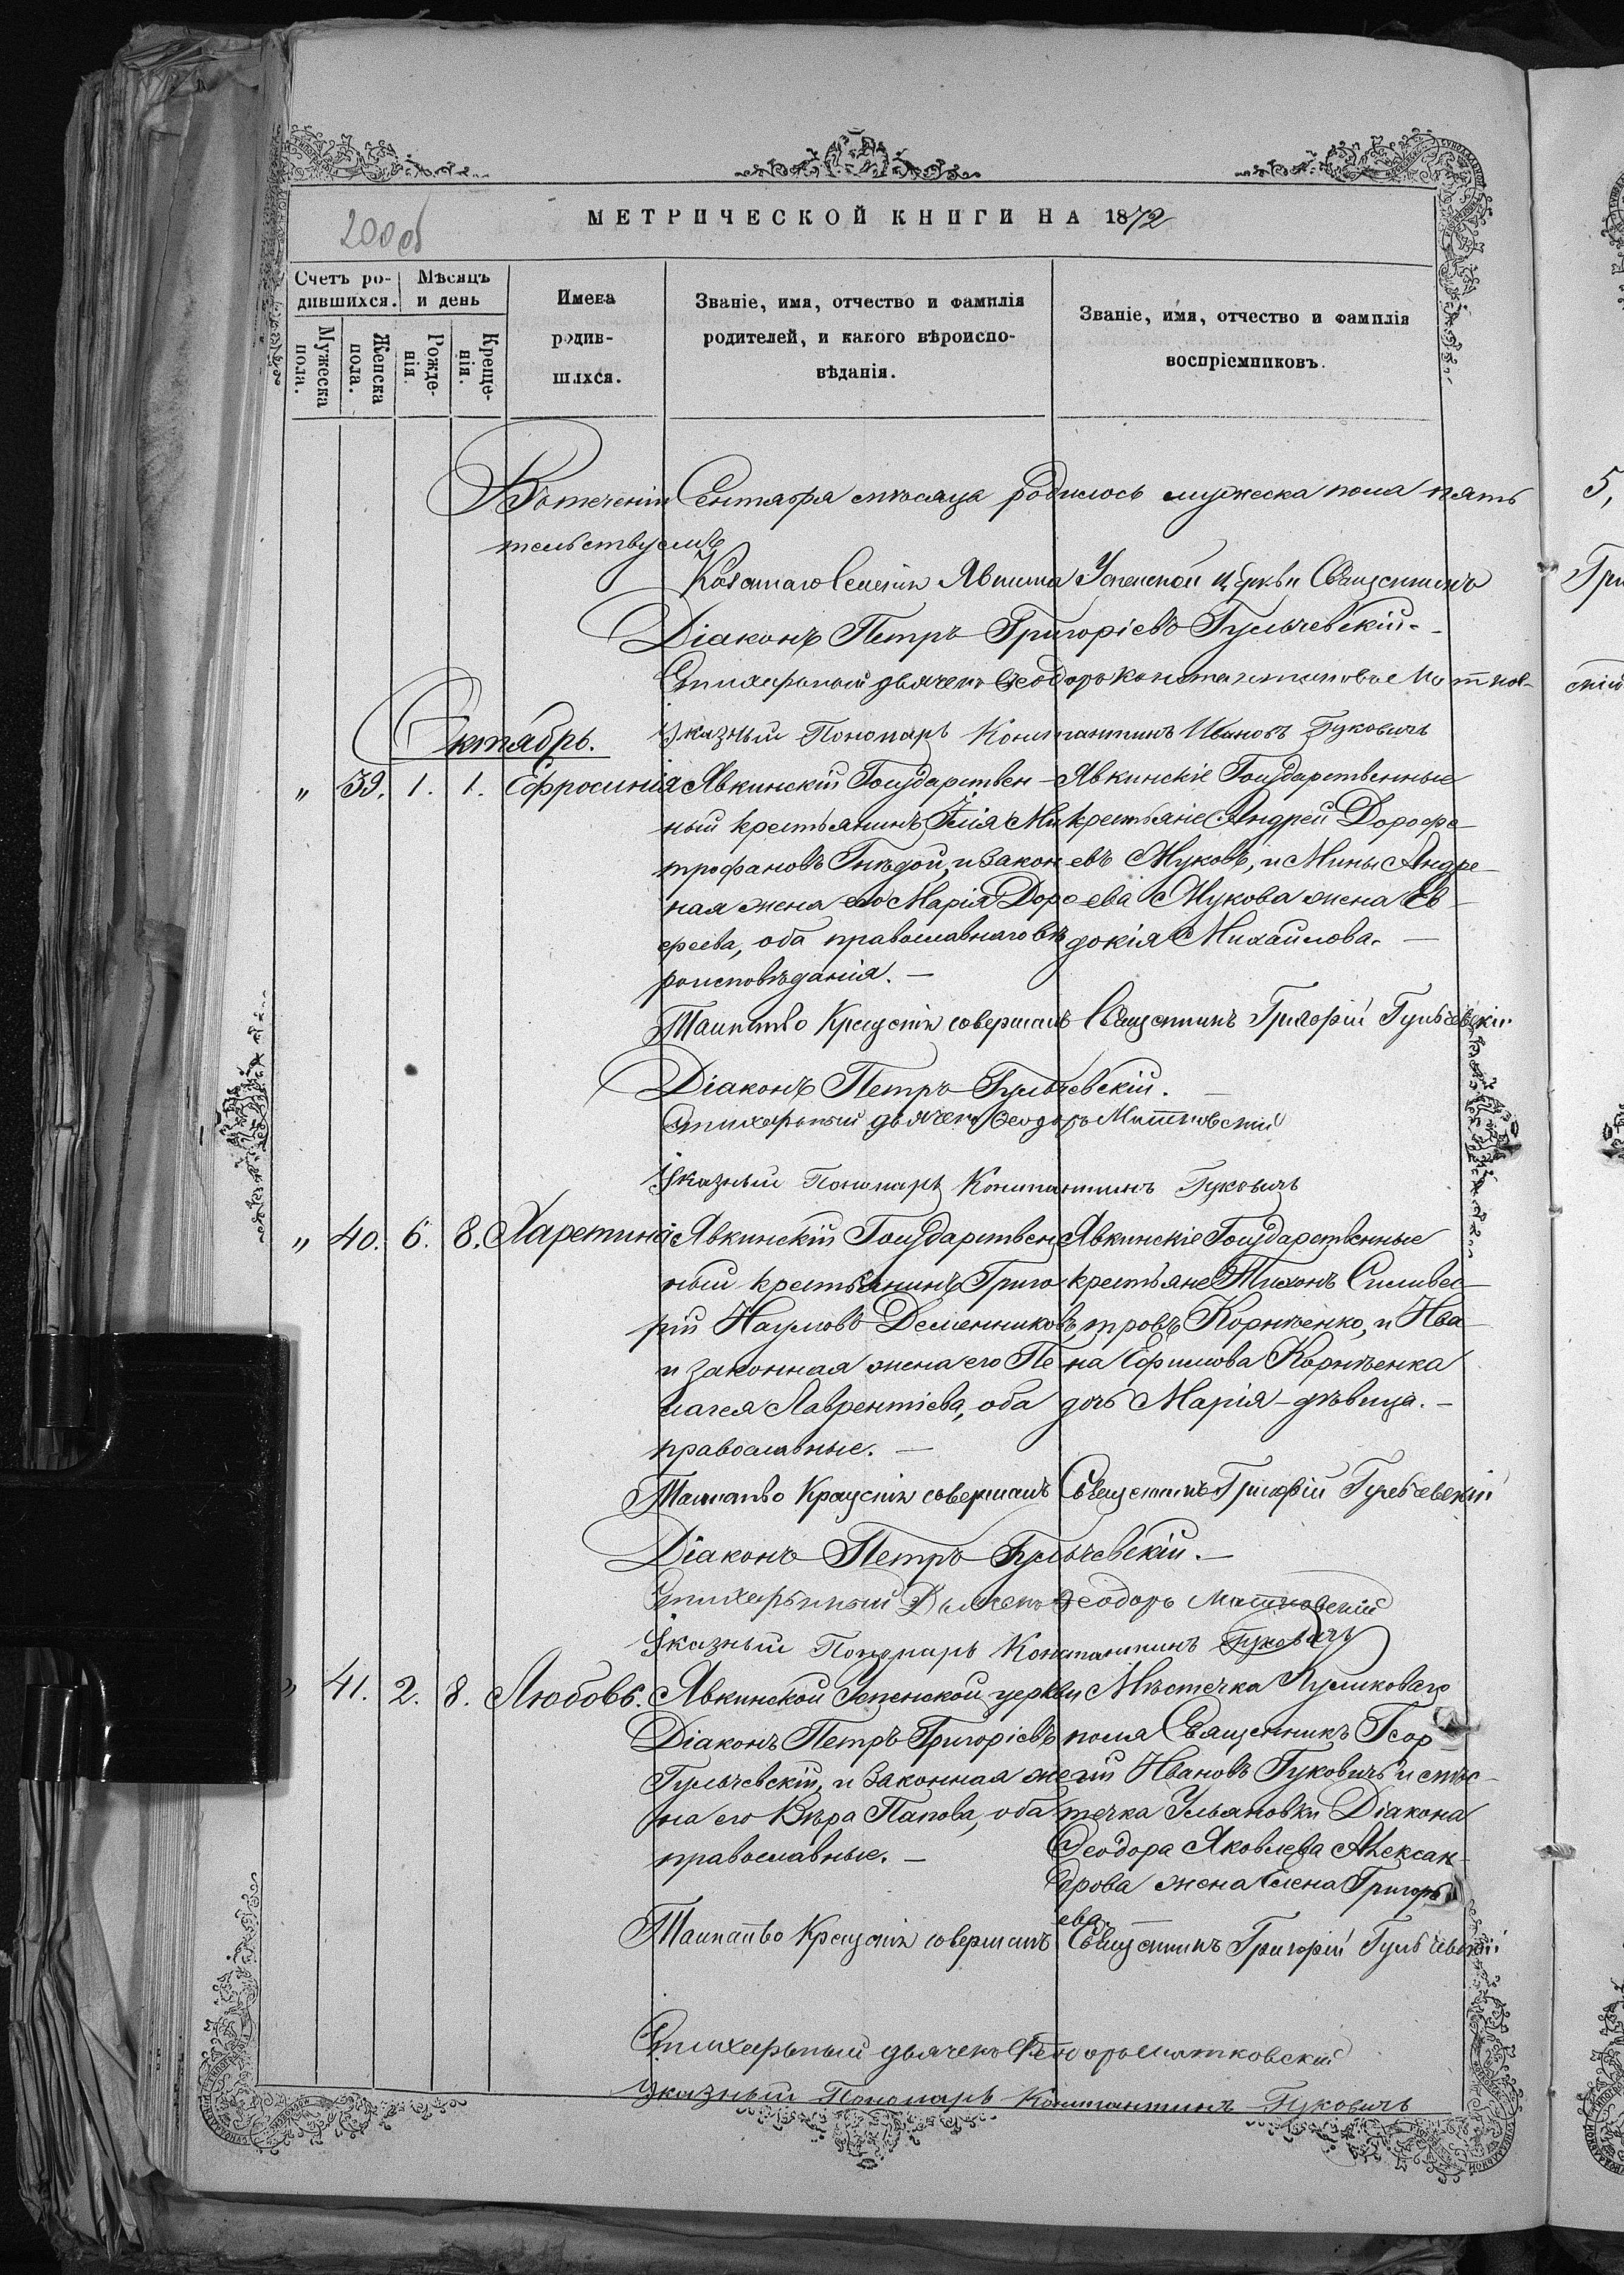 МЕТРИЧЕСКОЙ КНИГИ НА 1872
200об
Счетъ ро-
дившихся.
Мѣсяцъ
и день
Мужеска
пола.
Женска
пола.
Рожде-
нія.
Креще-
нія.
Имена
родив-
шихся.
Званіе, имя, отчество и фамилія
родителей, и какого вѣроиспо-
вѣданія.
Званіе, имя, отчество и фамилія
воспріемниковъ.
Въ теченіи Сентября мѣсяца родилось мужеска пола пять 5,
тельствуемъ
Явкина Успенской Церкви Священникъ Гри
Діаконъ Петръ Григоріевъ Гульчевскій.
Стихарный дьячекъ Ѳеодоръ Константиновъ
Указный Пономарь Константинъ Ивановъ Гуковичъ
Октябрь.
„ 39. 1. 1. Ефросинія
Явкинскій Государствен-
ный крестьянинъ Илія Ми-
трофановъ Гнѣдой, и закон-
ная жена его Марія Доро-
феева, оба православнаго вѣ-
роисповѣданія.—
Явкинскіе Государственные
крестьяне Андрей Дорофе-
евъ Жуковъ, и Мины Андре-
ева Жукова жена Ев-
докія Михайлова.—
Таинство Крещенія совершалъ Священникъ Григорій Гульчевскій
Діаконъ Петръ Гульчевскій.—
Стихарный дьячекъ Ѳеодоръ Матковскій
Указный Пономарь Константинъ Гуковичъ
„ 40. 6. 8. Харетина
Явкинскій Государствен-
ный крестьянинъ Григо-
рій Наумовъ Деменниковъ,
и законная жена его Пе-
лагея Лаврентіева, оба
православные.—
Явкинскіе Государственные
крестьяне Тихонъ Сильвес-
тровъ Корнѣенко, и Ива-
на Ефимова Корнѣенка
дочь Марія-дѣвица.—
Таинство Крещенія совершалъ Священникъ Григорій Гульчевскій
Діаконъ Петръ Гульчевскій.—
Стихарный Дьячекъ Ѳеодоръ Матковскій
Указный Пономарь Константинъ Гуковичъ
„ 41. 2. 8. Любовь.
Явкинской Успенской церкви
Діаконъ Петръ Григоріевъ
Гульчевскій, и законная же-
на его Вѣра Папова, оба
православные.—
Мѣстечка Куликоваго
поля Священникъ Геор-
гій Ивановъ Гуковичъ и мѣс-
течка Ульяновки Діакона
Ѳеодора Яковлева Алексан-
дрова жена Елена Григорь-
ева.
Таинство Крещенія совершалъ Священникъ Григорій Гульчевскій
Стихарный дьячекъ Ѳеодоръ Матковскій
Указный Пономарь Константинъ Гуковичъ